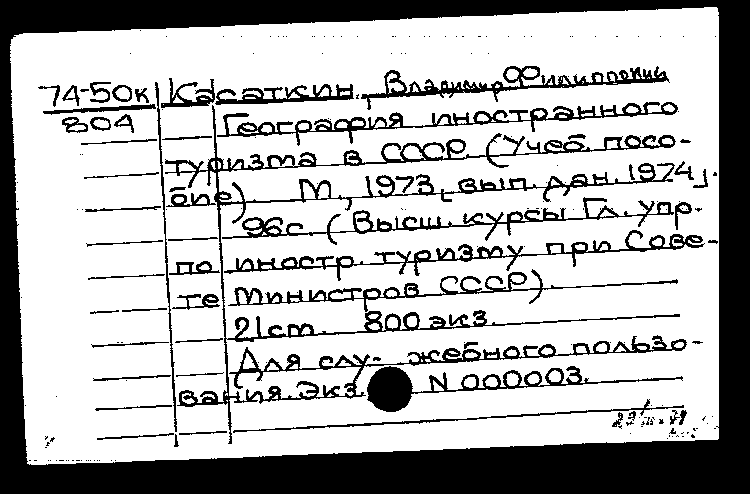 74-50к Касаткин, Владимир Филиппович
804 География иностранного
туризма в СССР. (Учеб. посо-
бие). М., 1973, [вып. дан. 1974].
96с. (Высш. курсы Гл. упр.
по иностр. туризму при Сове-
те Министров СССР).
21cm. 800 экз.
Для слу- жебного пользо-
вания. Экз. N 000003.